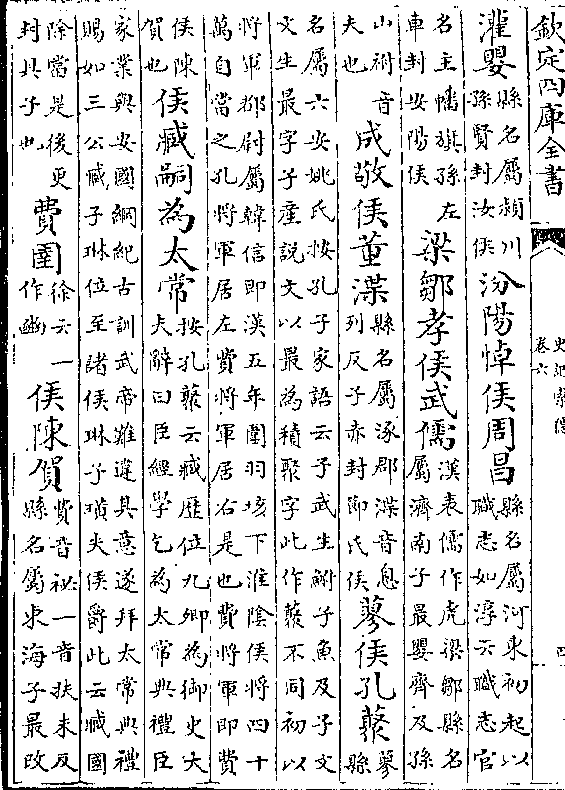 欽定四庫全書
史記索隱
卷六
四
灌嬰縣名屬潁川孫賢封汝侯汾陽悼侯周昌縣名屬河東初起以職志如淳云職志官
名主幡旗孫左車封安陽侯梁鄒孝侯武儒漢表儒作虎梁鄒縣名屬濟南子最嬰齊及孫
山柎音夫也成敬侯董渫縣名屬涿郡渫音息列反子赤封節氏侯蓼侯孔藂蓼縣
名屬六安姚氏按孔子家語云子武生鮒子魚及子文
文生最字子產說文以最為積聚字此作藂不同初以
將軍都尉屬韓信即漢五年圍羽垓下淮陰侯將四十
萬自當之孔將軍居左費將軍居右是也費將軍即費
侯陳賀也侯臧嗣為太常按孔藂云臧歷位九卿為御史大夫辭曰臣經學乞為太常典禮臣
家業與安國綱紀古訓武帝難違其意遂拜太常典禮
賜如三公臧子琳位至諸侯琳子璜失侯爵此云臧國
除當是後更封其子也費圉徐云一作幽侯陳賀費音祕一音扶未反縣名屬東海子最改